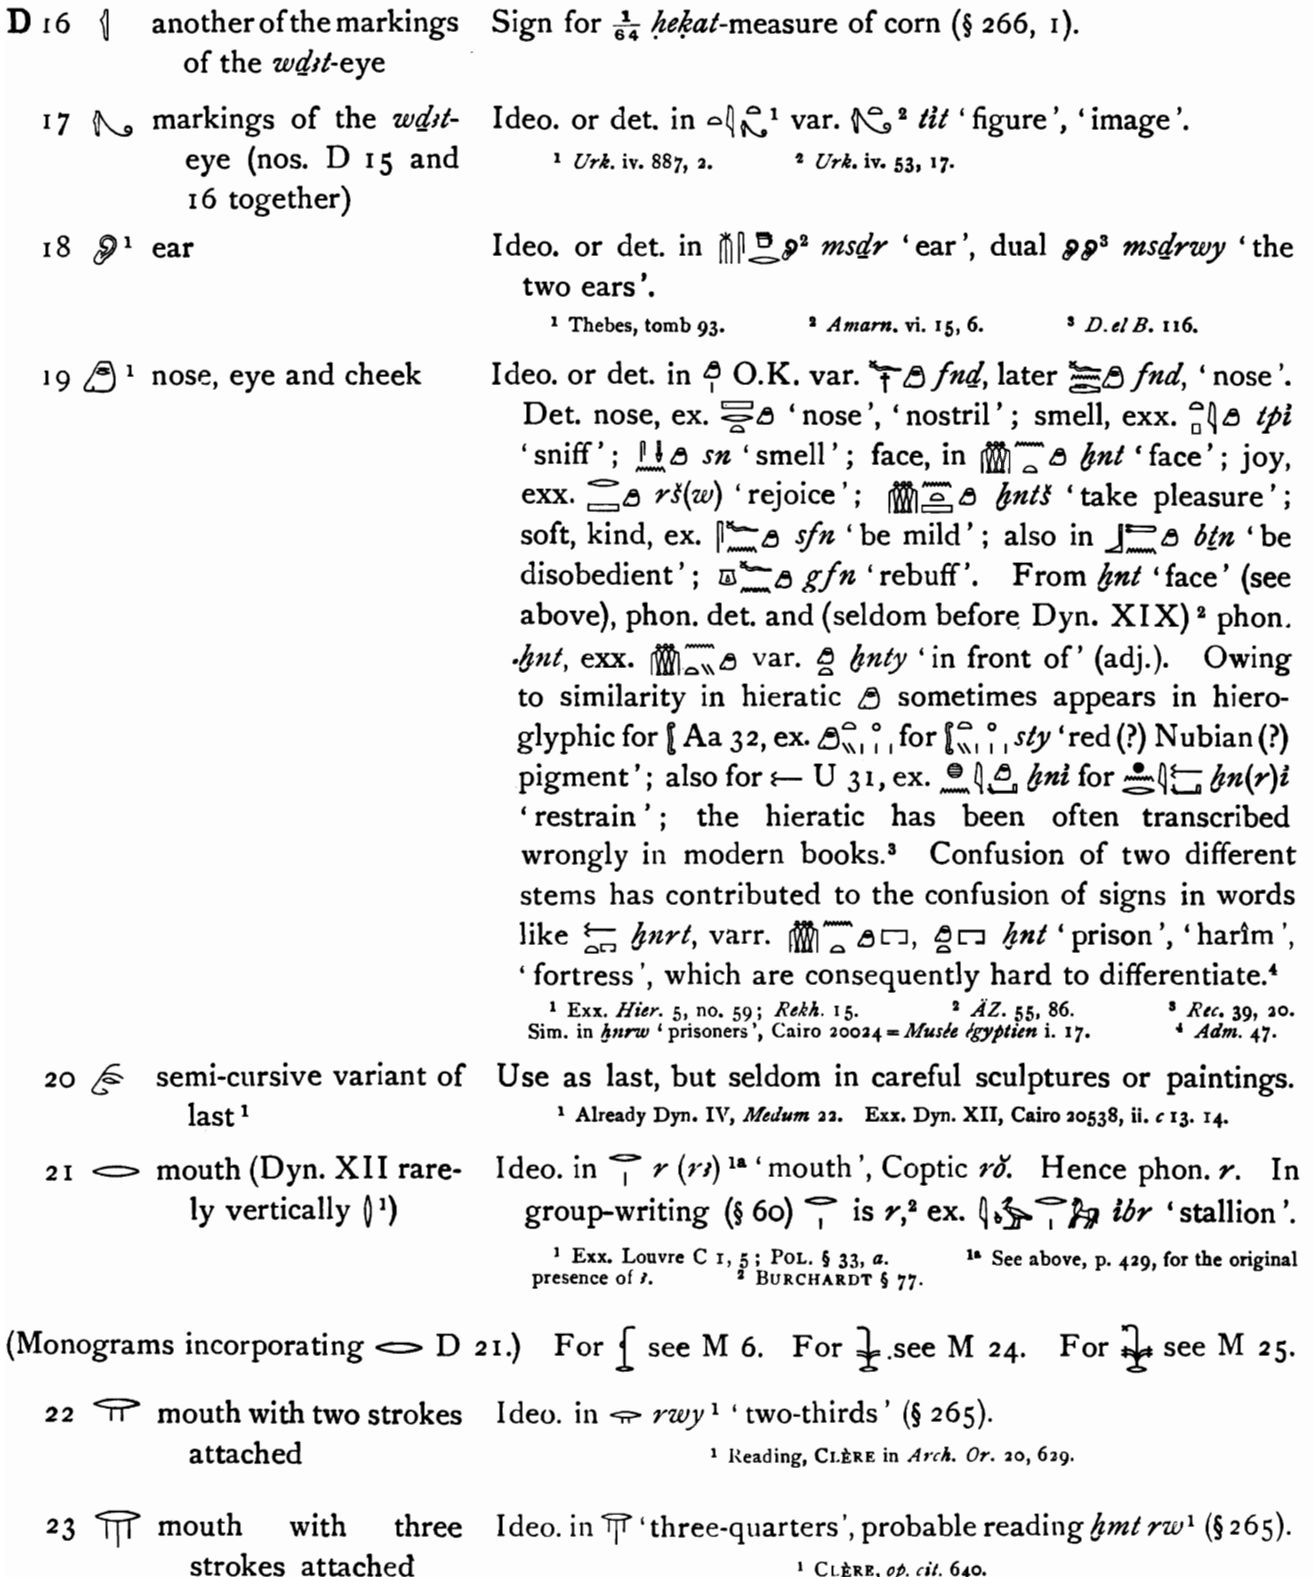 D 16 𓂆 another of the markings Sign for 1/64 ḥeḳat-measure of corn (§ 266, 1).
of the wḏꜣt-eye
17 𓂇 markings of the wḏꜣt- Ideo. or det. in ¹ var. ² tı͗t ‘figure’, ‘image’.
eye (nos. D 15 and ¹ Urk. iv. 887, 2. ² Urk. iv. 53, 17.
16 together)
18 𓂈¹ ear Ideo. or det. in ² msḏr ‘ear’, dual 𓂈𓂈³ msḏrwy ‘the
two ears’.
¹ Thebes, tomb 93. ² Amarn. vi. 15, 6. ³ D. el B. 116.
19 𓂉¹ nose, eye and cheek Ideo. or det. in O.K. var. fnḏ, later fnd, ‘nose’.
Det. nose, ex. ‘nose’, ‘nostril’; smell, exx. tpı͗
‘sniff’; sn ‘smell’; face, in ḫnt ‘face’; joy,
exx. rš(w) ‘rejoice’; ḫntš ‘take pleasure’;
soft, kind, ex. sfn ‘be mild’; also in bṯn ‘be
disobedient’; gfn ‘rebuff’. From ḫnt ‘face’ (see
above), phon. det. and (seldom before Dyn. XIX)² phon.
ḫnt, exx. var. ḫnty ‘in front of’ (adj.). Owing
to similarity in hieratic 𓂉 sometimes appears in hiero-
glyphic for Aa 32, ex. for sty ‘red (?) Nubian (?)
pigment’; also for U 31, ex. ḫnı͗ for ḫn(r)ı͗
‘restrain’; the hieratic has been often transcribed
wrongly in modern books.³ Confusion of two different
stems has contributed to the confusion of signs in words
like ḫnrt, varr. , ḫnt ‘prison’, ‘harîm’,
‘fortress’, which are consequently hard to differentiate.⁴
¹ Exx. Hier. 5, no. 59; Rekh. 15. ² ÄZ. 55, 86. ³ Rec. 39, 20.
Sim. in ḫnrw ‘prisoners’, Cairo 20024 = Musée égyptien i. 17. ⁴ Adm. 47.
20 𓂊 semi-cursive variant of Use as last, but seldom in careful sculptures or paintings.
last¹ ¹ Already Dyn. IV, Medum 22. Exx. Dyn. XII, Cairo 20538, ii. c 13. 14.
21 𓂋 mouth (Dyn. XII rare- Ideo. in 𓂋𓏤 r (rꜣ)¹ᵃ ‘mouth’, Coptic rŏ. Hence phon. r. In
ly vertically ¹) group-writing (§ 60) 𓂋𓏤 is r,² ex. ı͗br ‘stallion’.
¹ Exx. Louvre C 1, 5; POL. § 33, a. ¹ᵃ See above, p. 429, for the original
presence of ꜣ. ² BURCHARDT § 77.
(Monograms incorporating 𓂋 D 21.) For see M 6. For see M 24. For see M 25.
22 𓂌 mouth with two strokes Ideo. in rwy¹ ‘two-thirds’ (§ 265).
attached ¹ Reading, CLÈRE in Arch. Or. 20, 629.
23 𓂍 mouth with three Ideo. in 𓂍 ‘three-quarters’, probable reading ḫmt rw¹ (§ 265).
strokes attached ¹ CLÈRE, op. cit. 640.